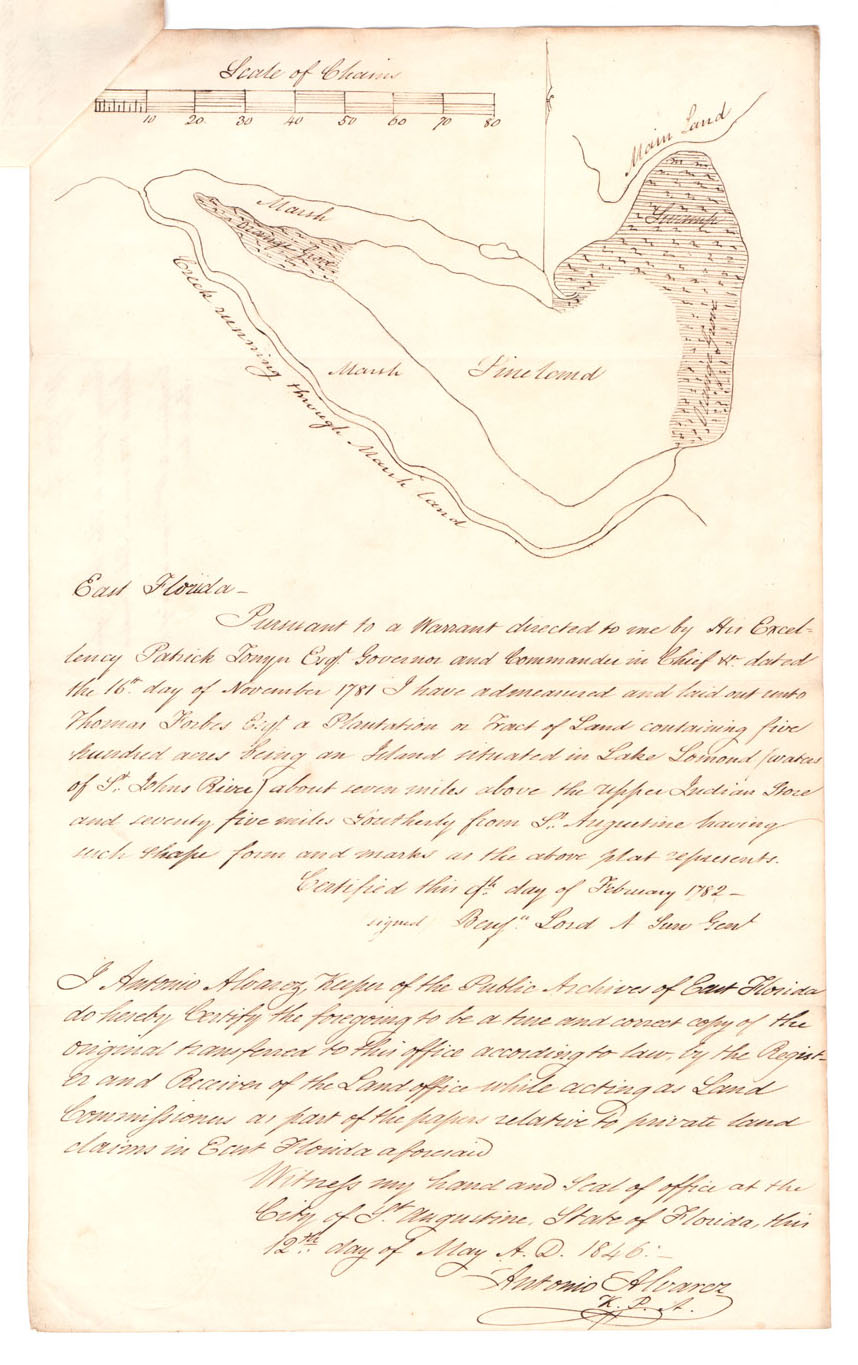 Scale of Chains
10 20 30 40 50 60 70 80
Main Land
Swamp
Marsh
Orange Grove
Creek running through Marsh land
Marsh
Pine land
Orange Grove
East Florida –
Pursuant to a Warrant directed to me by His Excel-
lency Patrick Tonyn Esqr. Governor and Commander in Chief &c. dated
the 16th. day of November 1781 I have admeasured and laid out unto
Thomas Forbes Esqr. a Plantation or Tract of Land containing five
hundred acres being an Island situated in Lake Lomond (waters
of St. Johns River) about seven miles above the upper Indian Store
and seventy five miles Southerly from St. Augustine having
such shape form and marks as the above plat represents.
Certified this day of February 1782 –
signed Benjn. Lord Surv Genl
I Antonio Alvarez, Keeper of the Public Archives of East Florida
do hereby Certify the foregoing to be a true and correct copy of the
original transferred to this office according to law, by the Regist-
er and Receiver of the Land office while acting as Land
Commissioners as part of the papers relative to private land
claims in East Florida aforesaid
Witness my hand and Seal of office at the
City of St. Augustine, State of Florida, this
12th. day of May A. D. 1846:–
Antonio Alvarez
K. P. A.